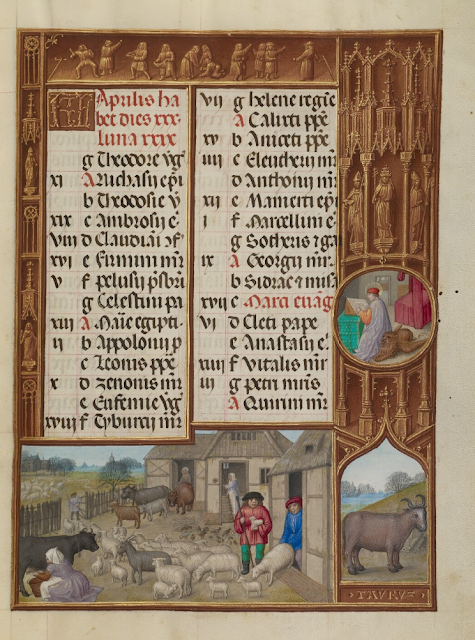 Aprilis ha
bet dies xxx
luna xxix
g Theodore vg̃
xi A Ruchasii ep̃i
b Theodosie v̄
xix c Ambrosij e
viii d Claudiãi
xvi e Firmini mr̃
v f pelusij
g Celestini pa
xiii A Marie egipti
ii b Appolonij p
c Leonis pp̃e
x d zenonis mr̃
e Eufemie vg̃
xviii f Tyburcij mr̃
vii g helene regĩe
A Calixti pp̃e
xv b Aniceti pp̃e
iiii c Eleutherij mr̃
d Anthonij mr̃
xii e Mamerti ep̃i
i f Marcellini e
g Sotheris z ga
ix A Georgij mr̃
b Sidrac z misa
xvii c Marci euãg
vi d Cleti pape
e Anastasij e
xiiii f vitalis mr̃
iii g petri
A Quirini mr̃
TAVRVZ